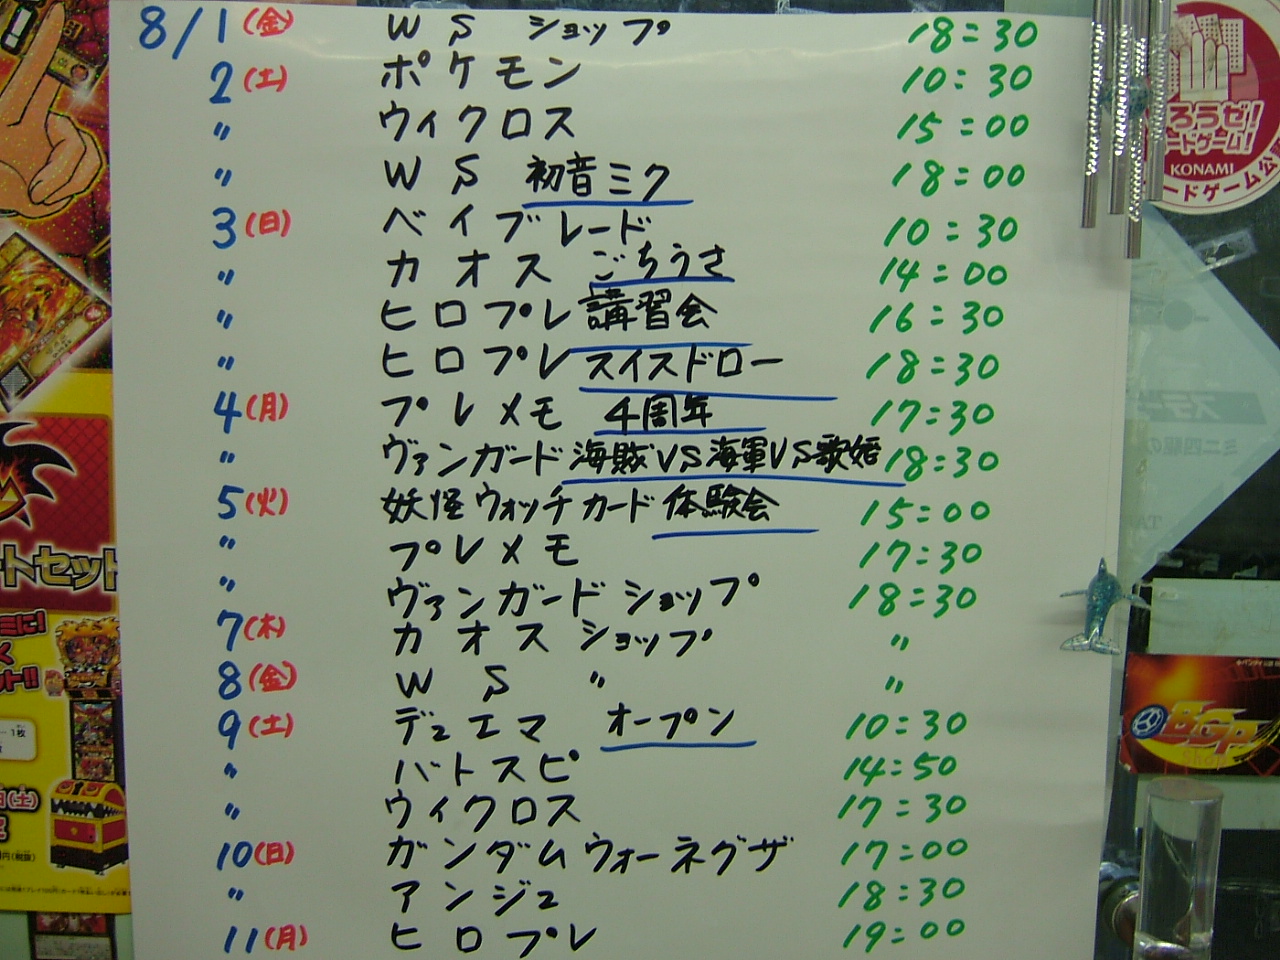 8/1(金) WS ショップ 18:30
2(土) ポケモン 10:30
〃 ウィクロス 15:00
〃 WS 初音ミク 18:00
3(日) ベイブレード 10:30
〃 カオス ごちうさ 14:00
〃 ヒロプレ 講習会 16:30
〃 ヒロプレ スイスドロー 18:30
4(月) プレメモ 4周年 17:30
〃 ヴァンガード 海賊VS海軍VS歌姫 18:30
5(火) 妖怪ウォッチカード 体験会 15:00
〃 プレメモ 17:30
〃 ヴァンガード ショップ 18:30
7(木) カオス ショップ 〃
8(金) WS 〃 〃
9(土) デュエマ オープン 10:30
〃 バトスピ 14:50
〃 ウィクロス 17:30
10(日) ガンダムウォーネグザ 17:00
〃 アンジュ 18:30
11(月) ヒロプレ 19:00
ろうぜ!
ードゲーム!
KONAMI
ードゲーム公
ートセット
ミに!
ット!!
1枚
(土)
円(税抜)
ステー
ミニ四駆の
TA
BGP
Shop